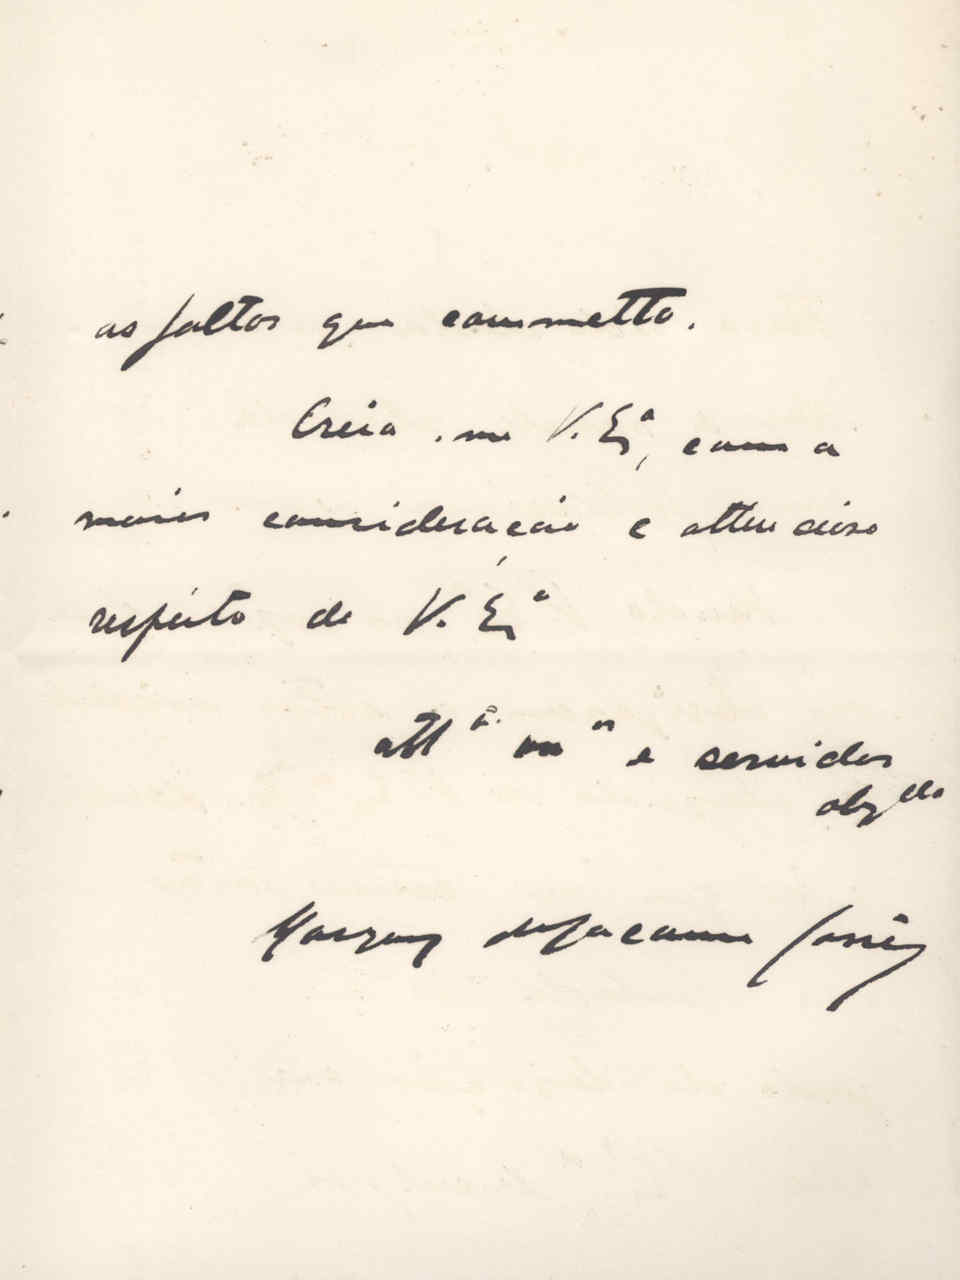 as faltas que commetto.
Creia-me V. Exª, com a
maior consideração e attencioso
respeito de V. Exª
attº vnºr e servidor
obgdo